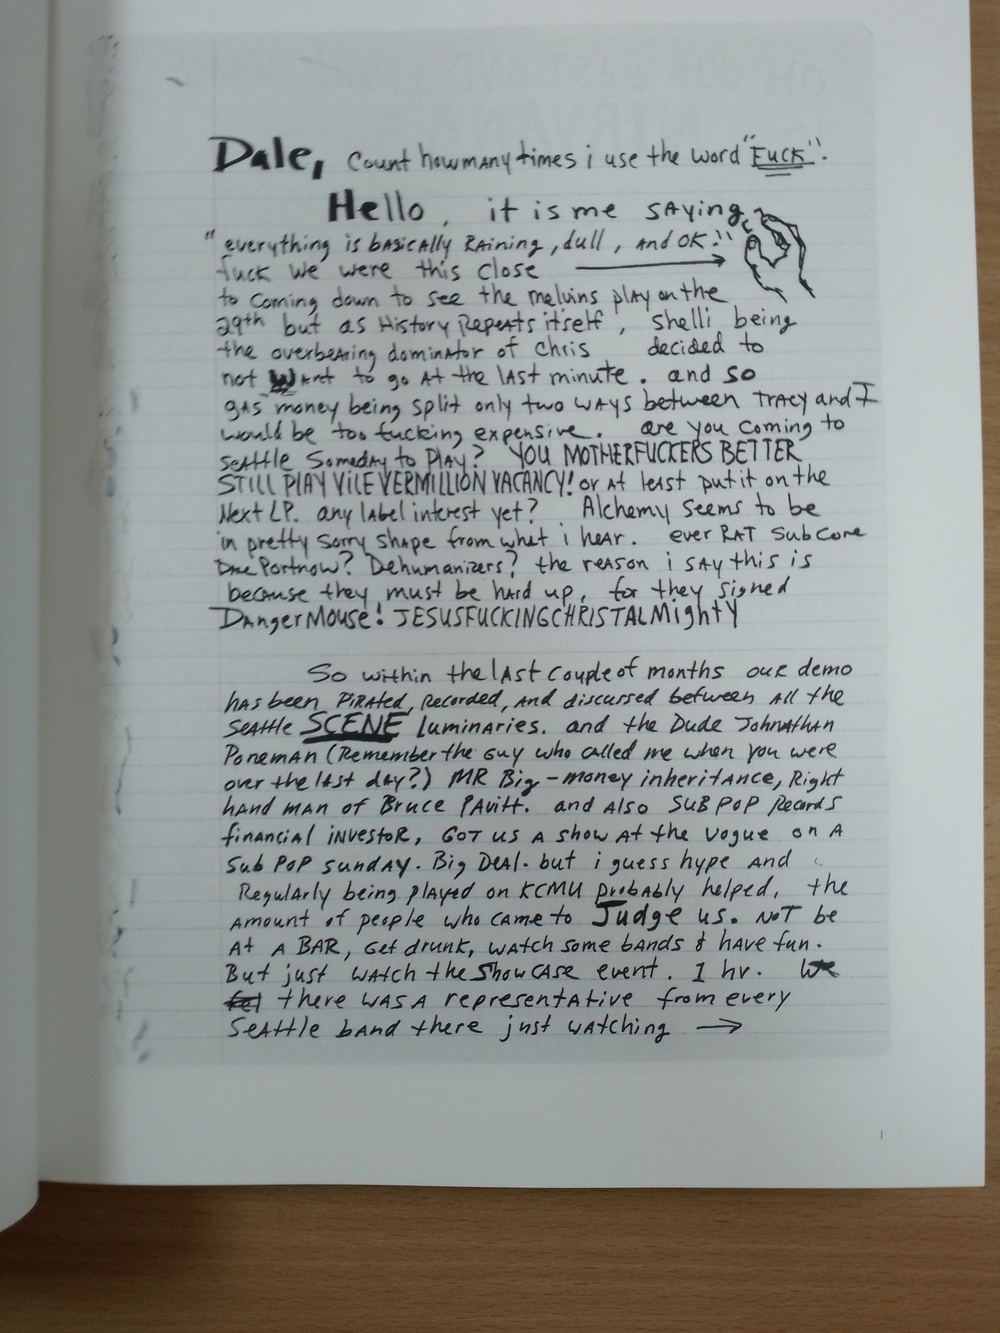 Dale, Count how many times i use the word "Fuck".
Hello, it is me saying
"everything is basically Raining, dull, and OK."
fuck we were this close
to coming down to see the melvins play on the
29th but as History Repeats itself, Shelli being
the overbearing dominator of Chris decided to
not want to go at the last minute. and so
gas money being split only two ways between Tracy and I
would be too fucking expensive. are you coming to
Seattle Someday to Play? YOU MOTHERFUCKERS BETTER
STILL PLAY VILE VERMILLION VACANCY! or at least put it on the
Next LP. any label interest yet? Alchemy seems to be
in pretty sorry shape from what i hear. ever RAT Subcore
Portnow? Dehumanizers? the reason i say this is
because they must be hard up, for they signed
Danger Mouse! JESUSFUCKINGCHRISTALMighty
So within the last couple of months our demo
has been Pirated, Recorded, and discussed between all the
Seattle SCENE luminaries. and the Dude Johnathan
Poneman (Remember the guy who called me when you were
over the last day?) MR Big-money inheritance, Right
hand man of Bruce Pavitt. and Also SUB POP Records
financial investor, GOT US A show At the Vogue on A
Sub POP Sunday. Big Deal. but i guess hype and
Regularly being played on KCMU probably helped, the
Amount of people who came to Judge us. NOT be
At A BAR, Get drunk, watch some bands & have fun.
But just watch the Showcase event. 1 hr.
there was a representative from every
Seattle band there just watching →
I